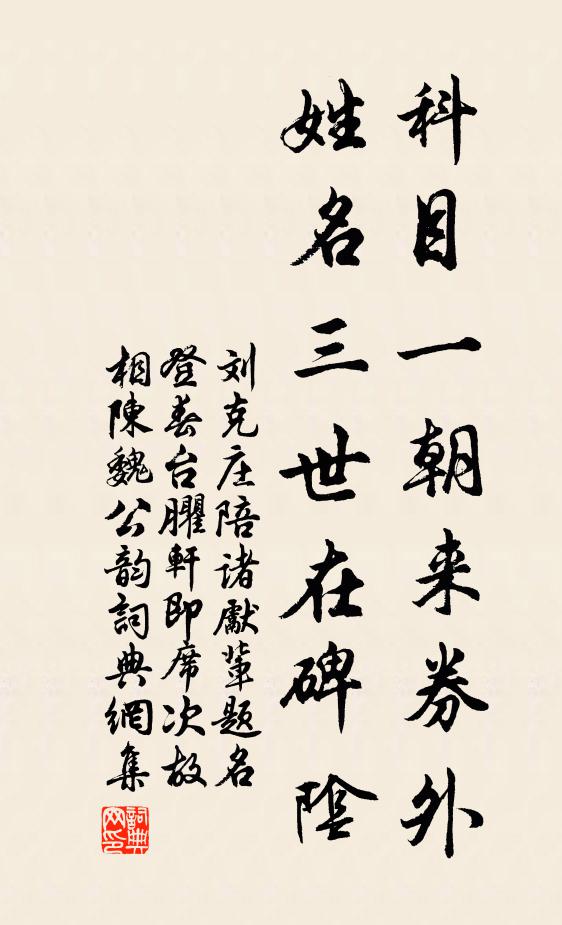 科目一朝来券外
姓名三世在碑陰
刘克庄陪诸獻輩题名
登春台臞軒即席次故
相陳魏公韵詞典網集
詞典网印